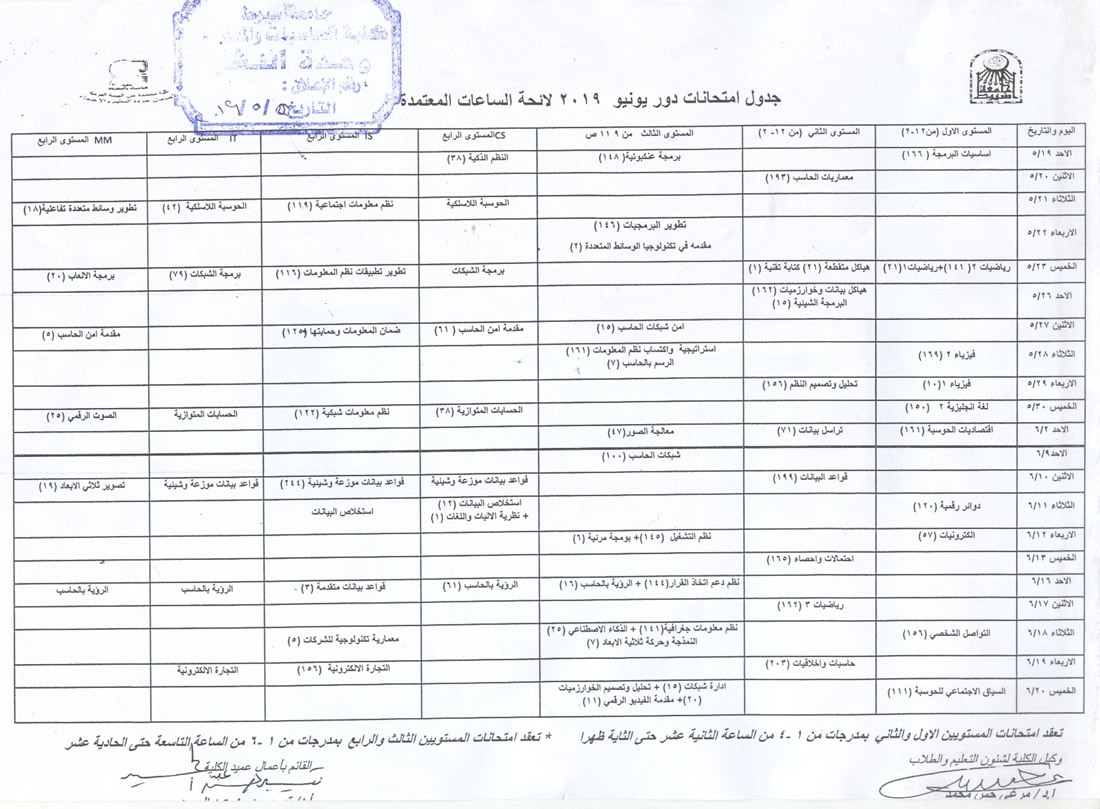 جامعة أسيوط
كلية الحاسبات
وحدة
التاريخ
جدول امتحانات دور يونيو ٢٠١٩ لائحة الساعات المعتمدة
اليوم والتاريخ المستوى الاول (من ١٢-٢) المستوى الثاني (من ١٢-٢) المستوى الثالث من ٩-١١ ص CS المستوى الرابع IS المستوى الرابع IT المستوى الرابع MM المستوى الرابع
الاحد ٥/١٩ اساسيات البرمجة (١٦٦) برمجة عنكبوتية (١٤٨) النظم الذكية (٣٨)
الاثنين ٥/٢٠ معماريات الحاسب (١٩٣)
الثلاثاء ٥/٢١ الحوسبة اللاسلكية نظم معلومات اجتماعية (١١٩) الحوسبة اللاسلكية (٤٢) تطوير وسائط متعددة تفاعلية(١٨)
الاربعاء ٥/٢٢ تطوير البرمجيات (١٤٦)
مقدمه في تكنولوجيا الوسائط المتعددة (٢)
الخميس ٥/٢٣ رياضيات ٢( ١٤١)+رياضيات١(٢١) هياكل متقطعة (٢١) كتابة تقنية (١) برمجة الشبكات تطوير تطبيقات نظم المعلومات (١١٦) برمجة الشبكات (٧٩) برمجة الالعاب (٢٠)
الاحد ٥/٢٦ هياكل بيانات وخوارزميات (١٦٢)
البرمجة الشيئية (١٥)
الاثنين ٥/٢٧ امن شبكات الحاسب (١٥) مقدمة امن الحاسب (٦١) ضمان المعلومات وحمايتها (١٢٥) مقدمة امن الحاسب (٥)
الثلاثاء ٥/٢٨ فيزياء ٢ (١٦٩) استراتيجية واكتساب نظم المعلومات (١٦١)
الرسم بالحاسب (٧)
الاربعاء ٥/٢٩ فيزياء ١(١٠) تحليل وتصميم النظم (١٥٦)
الخميس ٥/٣٠ لغة انجليزية ٢ (١٥٠) الحسابات المتوازية (٣٨) نظم معلومات شبكية (١٢٢) الحسابات المتوازية الصوت الرقمي (٢٥)
الاحد ٦/٢ اقتصاديات الحوسبة (١٦١) تراسل بيانات (٧١) معالجة الصور(٤٧)
الاحد٦/٩ شبكات الحاسب (١٠٠)
الاثنين ٦/١٠ قواعد البيانات (١٩٩) قواعد بيانات موزعة وشيئية قواعد بيانات موزعة وشيئية (٢٤٤) قواعد بيانات موزعة وشيئية تصوير ثلاثي الابعاد (١٩)
الثلاثاء ٦/١١ دوائر رقمية (١٢٠) استخلاص البيانات (١٢) استخلاص البيانات
+ نظرية الاليات واللغات (١)
الاربعاء ٦/١٢ الكترونيات (٥٧) نظم التشغيل (١٤٥)+ برمجة مرئية (٦)
الخميس ٦/١٣ احتمالات واحصاء (١٦٥)
الاحد ٦/١٦ نظم دعم اتخاذ القرار(١٤٤) + الرؤية بالحاسب (١٦) الرؤية بالحاسب (٦١) قواعد بيانات متقدمة (٣) الرؤية بالحاسب الرؤية بالحاسب
الاثنين ٦/١٧ رياضيات ٣ (١٦٢)
الثلاثاء ٦/١٨ التواصل الشخصي (١٥٦) نظم معلومات جغرافية(١٤١) + الذكاء الاصطناعي (٢٥) معمارية تكنولوجية للشركات (٥)
النمذجة وحركة ثلاثية الابعاد (٧)
الاربعاء ٦/١٩ حاسبات واخلاقيات (٢٠٣) التجارة الالكترونية (١٥٦) التجارة الالكترونية
الخميس ٦/٢٠ السياق الاجتماعي للحوسبة (١١١) ادارة شبكات (١٥) + تحليل وتصميم الخوارزميات
(٢٠)+ مقدمة الفيديو الرقمي (١١)
تعقد امتحانات المستويين الاول والثاني بمدرجات من ١ -٤ من الساعة الثانية عشر حتى الثاية ظهرا * تعقد امتحانات المستويين الثالث والرابع بمدرجات من ١ -٦ من الساعة التاسعة حتى الحادية عشر
وكيل الكلية لشئون التعليم والطلاب القائم بأعمال عميد الكلية